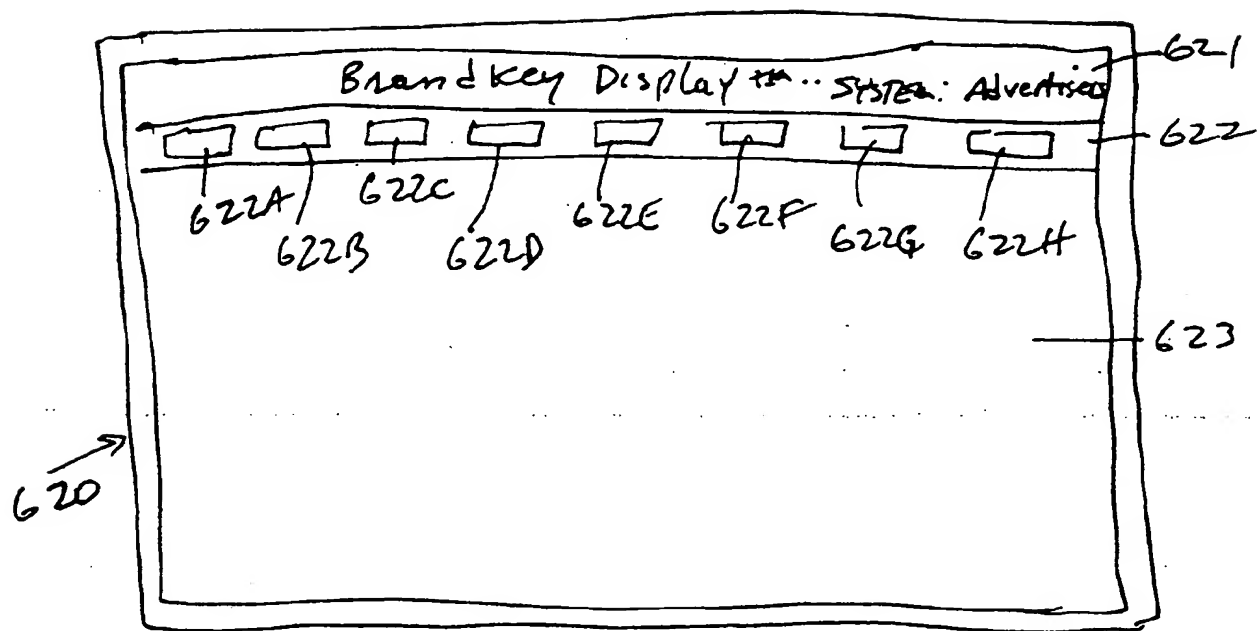 BrandKey Display TM .. SYSTEM: Advertisers
621
622
622A
622B
622C
622D
622E
622F
622G
622H
623
620